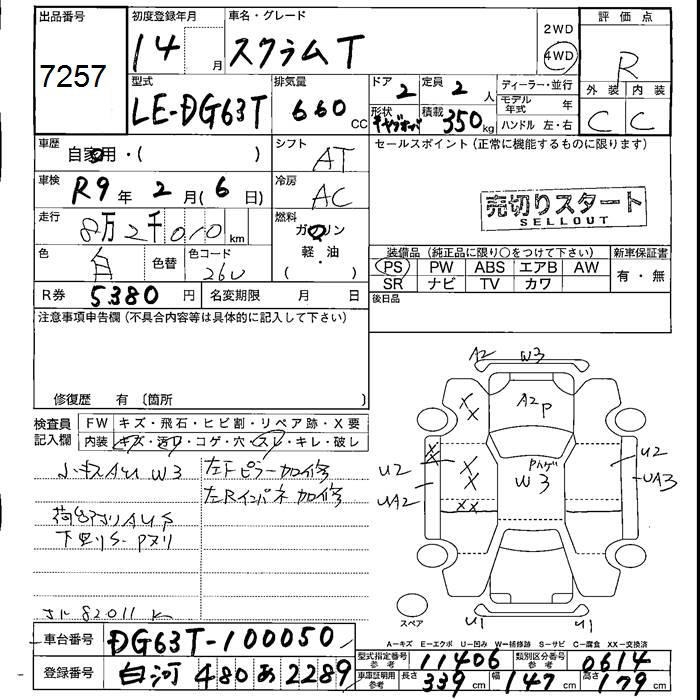 出品番号 初度登録年月 車名・グレード 評価点
7257 14月 スクラムT 2WD 4WD R
型式 排気量 ドア 2 定員 2人 ディーラー・並行 外装 内装
LE-DG63T 660cc 形状 積載 350kg モデル年式 年 C C
ハンドル 左・右
車歴 自家用・( ) シフト AT セールスポイント(正常に機能するものに限ります)
車検 R9年 2月(6日) 冷房 AC
売切りスタート
SELLOUT
走行 8万2千010km 燃料 ガソリン
軽・油
( )
色 白 色替 色コード 26U
装備品(純正品に限り○をつけて下さい) 新車保証書
PS PW ABS エアB AW 有・無
SR ナビ TV カワ
R券 5380円 名変期限 月 日 後日品
注意事項申告欄(不具合内容等は具体的に記入して下さい)
修復歴 有〔箇所 〕
検査員記入欄 FW キズ・飛石・ヒビ割・リペア跡・X要
内装 キズ・汚レ・コゲ・穴・スレ・キレ・破レ
小キズAU W3 左Fピラー加修
左Rインパネ加修
荷台凹リAUS
下回リS-Pヌリ
82011K
A2 W3
XX A2P
U2 XX XX PハゲW3 U2
UA2 XX UA3
スペア U1 U1
A−キズ E−エクボ U−凹み W−補修跡 S−サビ C−腐食 XX−交換済
車台番号 DG63T-100050 型式指定番号 参考 11406 類別区分番号 参考 0614
登録番号 白河 480 あ 2289 車庫証明用 参考 長さ 339cm 幅 147cm 高さ 179cm